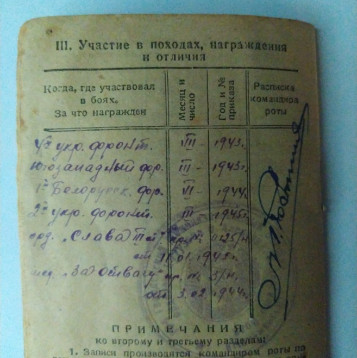 III. Участие в походах, награждения
и отличия
Когда, где участвовал
в боях.
За что награжден
Месяц и
число
Год и №
приказа
Расписка
командира
роты
укр. фронт. VII - 1943г.
Югозападный фр. III - 1943г.
1й Белорусск. фр. VI - 1944г.
2й укр. фронт. III - 1945г.
орд. „Слава
от 11.01.1945г.
мед. „За отвагу" пр. №
от 3.02.1944г.
ПРИМЕЧАНИЯ
ко второму и третьему разделам:
1. Записи производятся командиром роты по